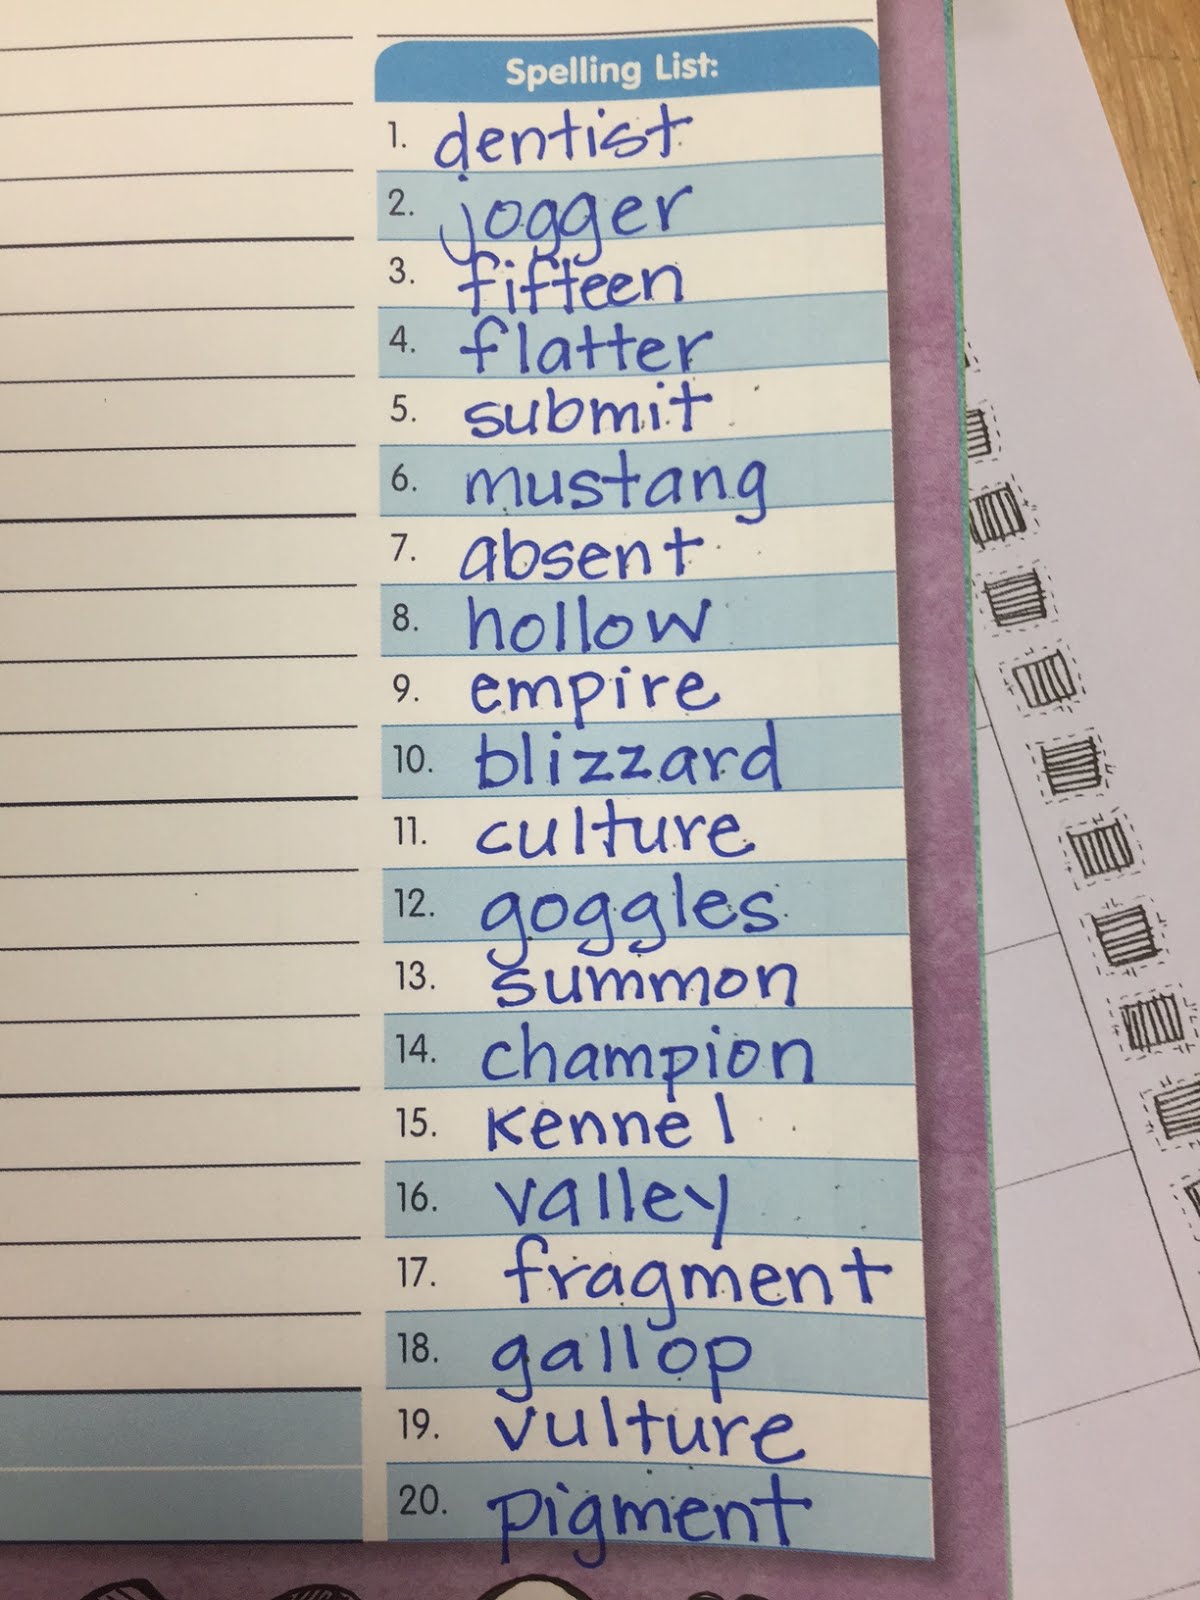 Spelling List:
1. dentist
2. jogger
3. fifteen
4. flatter
5. submit
6. mustang
7. absent
8. hollow
9. empire
10. blizzard
11. culture
12. goggles
13. summon
14. champion
15. kennel
16. valley
17. fragment
18. gallop
19. vulture
20. pigment